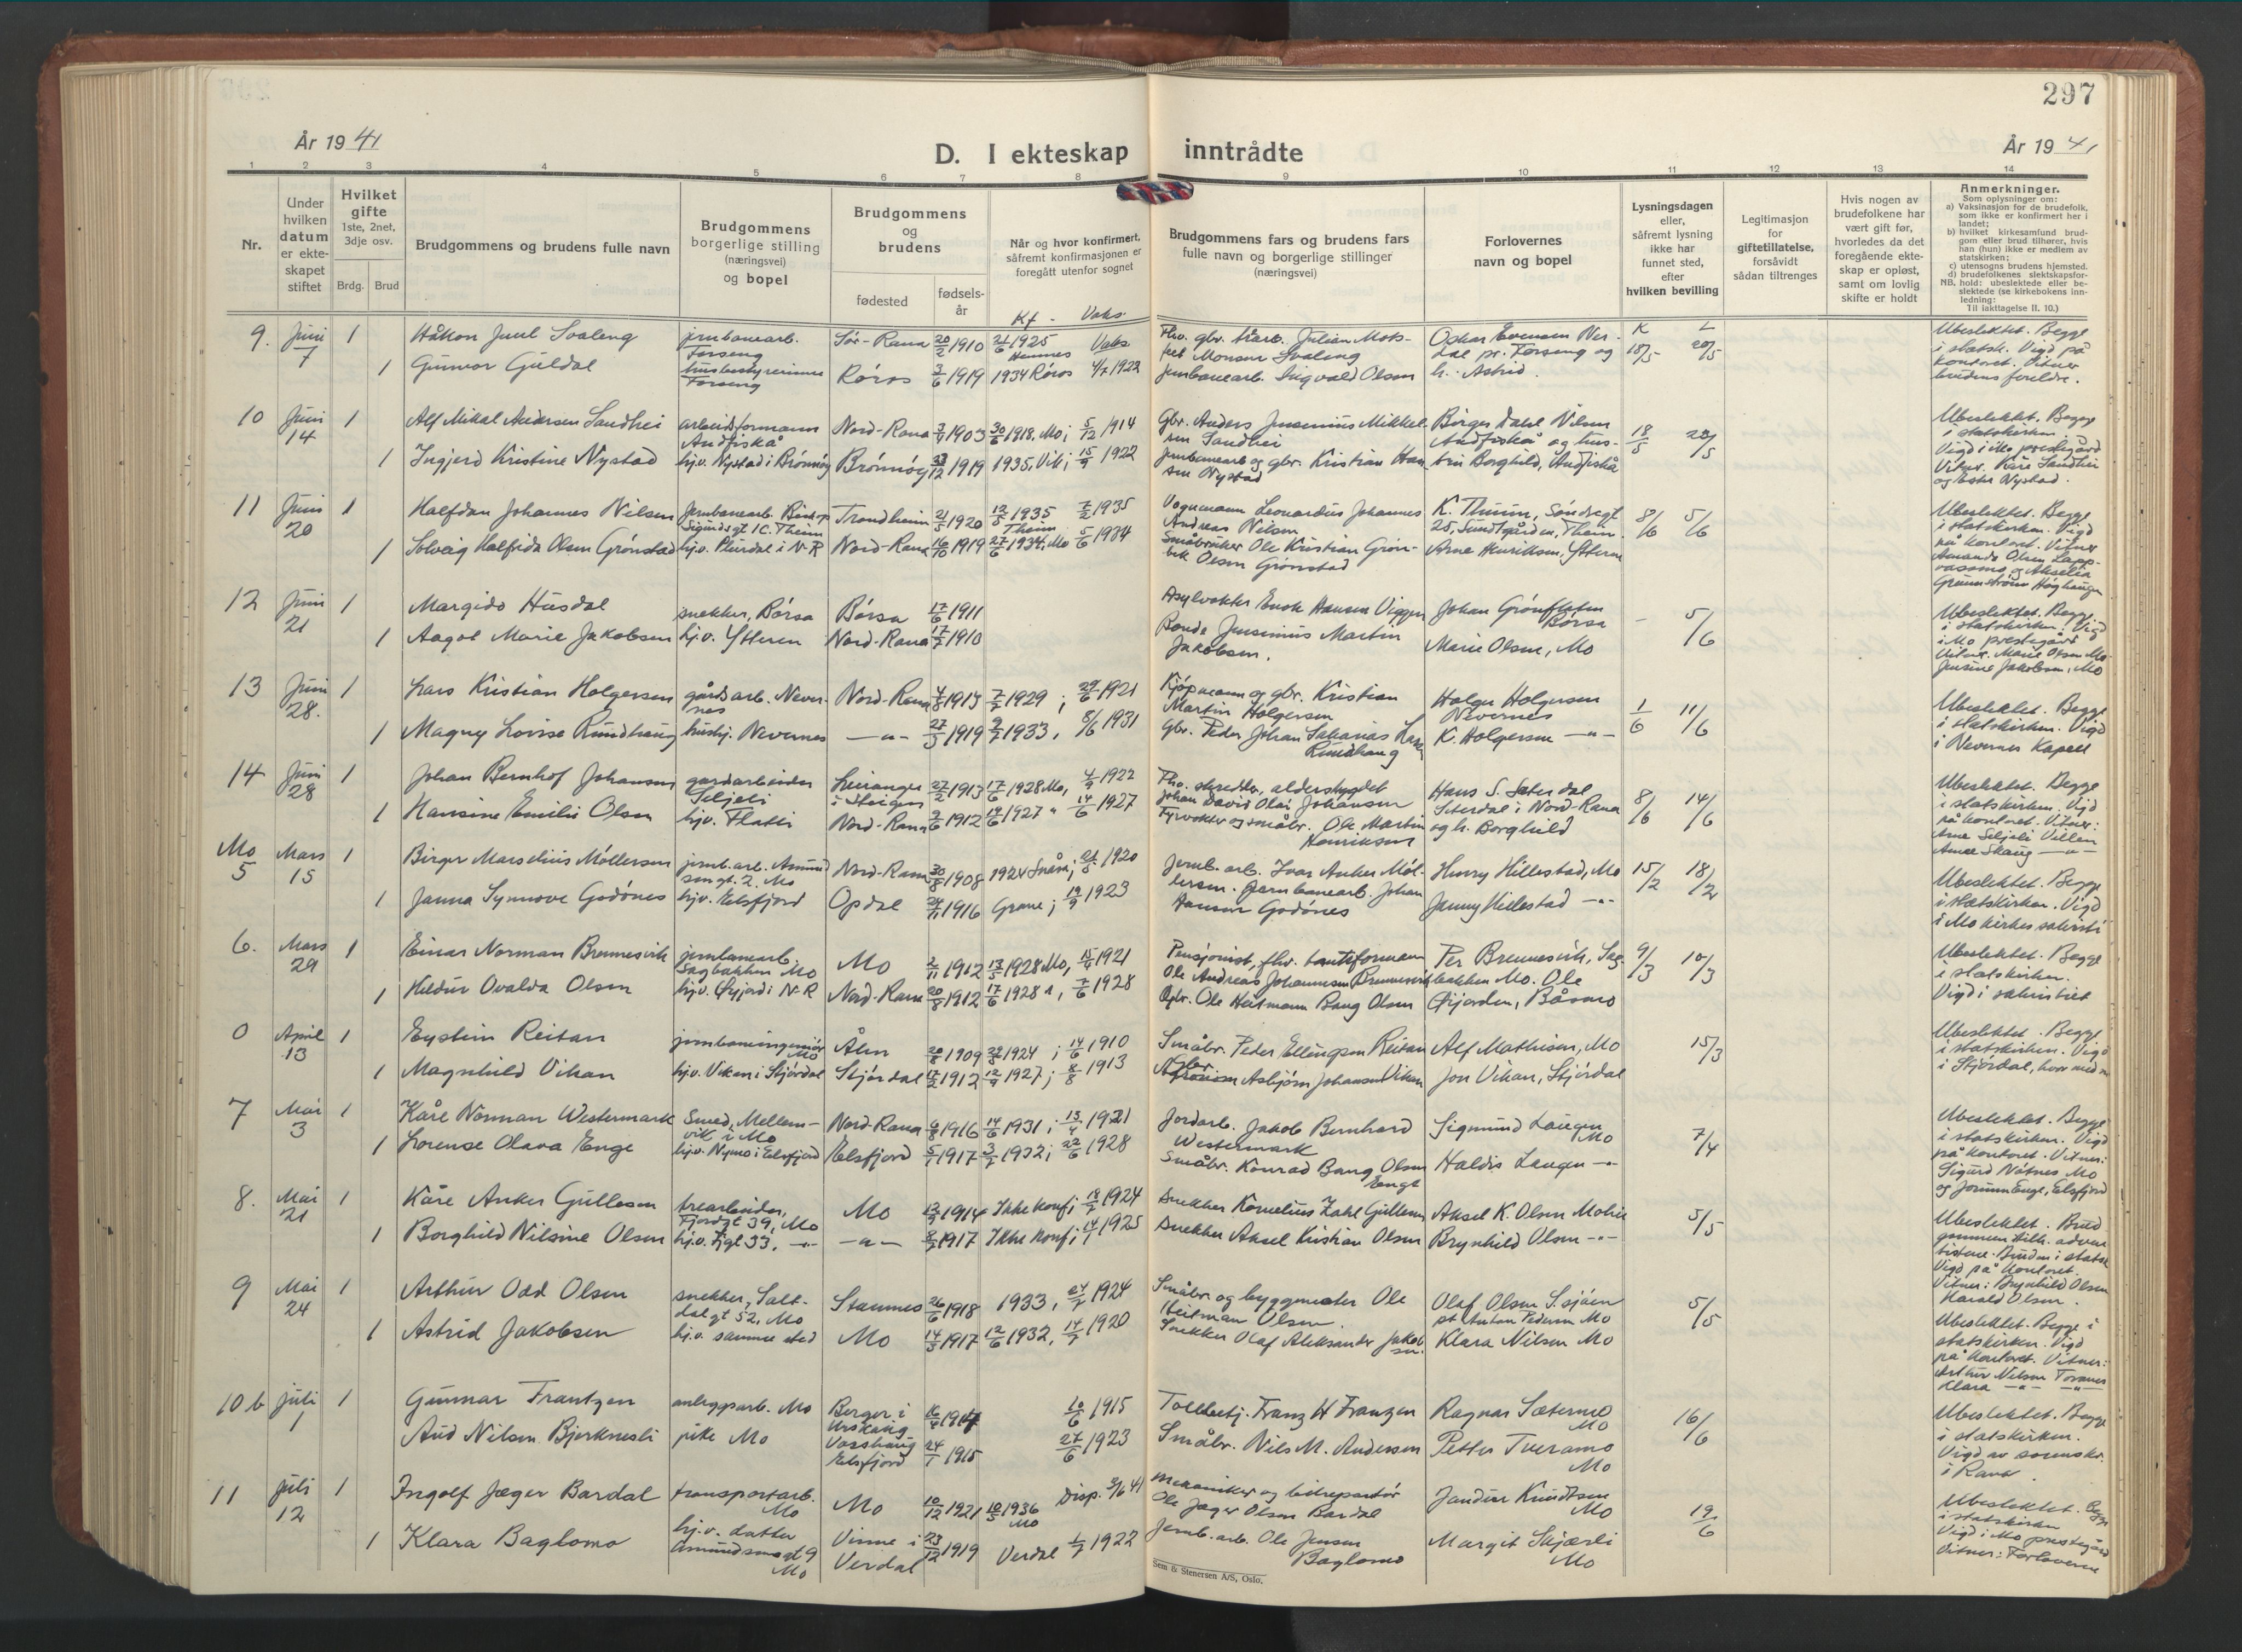 297
År 1941
D. I ekteskap inntrådte
År 1941
1 2 3 4 5 6 7 8 9 10 11 12 13 14
Nr.
Under hvilken datum er ekteskapet stiftet
Hvilket gifte
1ste, 2net, 3dje osv.
Brdg. Brud
Brudgommens og brudens fulle navn
Brudgommens borgerlige stilling (næringsvei) og bopel
Brudgommens og brudens
fødested
fødselsår
Når og hvor konfirmert, såfremt konfirmasjonen er foregått utenfor sognet
Kf. Vaks.
Brudgommens fars og brudens fars fulle navn og borgerlige stillinger (næringsvei)
Forlovernes navn og bopel
Lysningsdagen eller, såfremt lysning ikke har funnet sted, efter hvilken bevilling
Legitimasjon for giftetillatelse, forsåvidt sådan tiltrenges
Hvis nogen av brudefolkene har vært gift før, hvorledes da det foregående ekteskap er opløst, samt om lovlig skifte er holdt
Anmerkninger.
Som oplysninger om:
a) Vaksinasjon for de brudefolk, som ikke er konfirmert her i landet;
b) hvilket kirkesamfund brudgom eller brud tilhører, hvis han (hun) ikke er medlem av statskirken;
c) utensogns brudens hjemsted.
d) brudefolkenes slektskapsforhold: ubeslektede eller beslektede (se kirkebokens innledning:
NB. Til iakttagelse II. 10.)
9. Juni 7 1 Håkon Juul Svaleng jernbanearb. Forseng Sør-Rana 20/2 1910 21/6 1925 Hemnes Vaks
1 Gunvor Guldal husbestyrerinne Forseng Røros 3/6 1919 1934 Røros 4/7 1922
jernbanearb. Ingvald Olsen
Oskar Evensen Nerdal pr. Forseng og h. Astrid.
K 18/5 L 20/5
Ubeslektet. Begge i statsk. Vigd på kontoret. Vitner brudens foreldre.
10 Juni 14 1 Alf Mikal Andersen Sandhei arbeidsformann Andfiskå Nord-Rana 1903 30/6 1918, Mo; 5/12 1914
1 Ingjerd Kristine Nystad hj.v. Nystad i Brønnøy Brønnøy 1919 1935, Vik; 15/9 1922
Gbr. Anders Jensenius Mikkelsen Sandhei
jernbanearb og gbr. Kristian Hansen Nystad
Birger Dahl Nilsen Andfiskå og hustru Borghild, Andfiskå
18/5 20/5
Ubeslektet. Begge i statskirken Vigd i Mo prestegård Vitner. Kåre Sandhei og Ester Nystad.
11 Juni 20 1 Halfdan Johannes Nilsen Jernbanearb. Bisp Sigurdsgt 1C. Theim Trondheim 21/1 1920 12/5 1935 Theim 7/2 1935
1 Solveig Halfida Olsen Grønstad hj.v. Plurdal i N-R Nord-Rana 16/10 1919 27/6 1934, Mo 5/6 1934
Vognmann Leonardus Johannes Andreas Nilsen
Småbruker Ole Kristian Grønbek Olsen Grønstad
K. Thunn, Søndregt 25, Sundtgården, Theim.
Arne Henriksen, Ytteren
8/6 5/6
Ubeslektet. Begge i statskirken. Vigd på kontoret. Vitner
12 Juni 21 1 Margido Husdal snekker, Børsa Børsa 17/6 1911
1 Aagot Marie Jakobsen hj.v. Ytteren Nord-Rana 17/2 1910
Asylvokter Enok Hansen Viggen
Bonde Jensinius Martin Jakobsen.
Johan Grønfleten Børsa
Marie Olsen, Mo
- 5/6
Ubeslektet. Begge i statskirken. Vigd i Mo prestegård Vitner. Marie Olsen Mo Jensine Jakobsen, Mo
13 Juni 28. 1 Lars Kristian Holgersen gårdsarb. Nevernes Nord-Rana 4/8 1913 7/2 1929; 29/6 1921
1 Magny Lovise Rundhaug hushj. Nevernes -"- 27/3 1919 2/7 1933, 8/6 1931
Kjøpmann og gbr. Kristian Martin Holgersen
Gbr. Peder Johan Sakarias Rundhaug
Holger Holgersen Nevernes
K. Holgersen -"-
1/6 11/6
Ubeslektet. Begge i statskirken. Vigd i Nevernes Kapell
14 Juni 28 1 Johan Bernhof Johansen gardarbeider Seljeli Leiranger i Steigen 27/2 1913 17/6 1928 Mo, 4/9 1922
1 Hansine Emilie Olsen hj.v. Flatti Nord-Rana 2/6 1912 19/6 1927 " 14/6 1927
Fhv. skredder, alderstrygdet Johan David Olai Johansen
Fyrvokter og småbr. Ole Martin Henriksen
Hans S. Seterdal Seterdal i Nord-Rana og h. Borghild
8/6 14/6
Ubeslektet. Begge i statskirken. Vigd på kontoret. Vitner: Arne Seljeli
Mo 5 Mars 15 1 Birger Marselius Møllersen jernb.arb. Amundsengt. 2. Mo Nord-Rana 30/8 1908 1924 Snåsa; 1920
1 Janna Synnøve Godønes hj.v. Elsfjord Opdal 24/11 1916 Grane; 19/9 1923
Jernb. arb. Ivar Anker Møllersen. Jernbanearb. Johan Hansen Godønes
Henry Hillestad, Mo
Jenny Hillestad -"-
15/2 18/2
Ubeslektet. Begge i statskirken. Vigd i Mo kirkes sakristi
6. Mars 29 1 Einar Norman Brennesvik jernbanearb. Sagbakken Mo Mo 2/11 1912 13/5 1928 Mo, 15/4 1921
1 Hildur Ovalda Olsen hj.v. Øijord i N-R Nord-Rana 20/8 1912 17/6 1928 ", 7/6 1928
Pensjonist, fhv. Ole Andreas Johannesen Brennesvik
Gbr. Ole Heitmann Bang Olsen
Per Brennesvik, Sagbakken Mo. Ole Øijorden, Båsmo
9/3 10/3
Ubeslektet. Begge i statskirken. Vigd i sakristiet
0 April 13 1 Eystein Reitan jernbaneingeniør Mo Ålen 20/8 1909 1924; 14/6 1910
1 Magnhild Vikan hj.v. Vikan i Stjørdal Stjørdal 17/2 1912 12/9 1927; 8/8 1913
Småbr. Peder Ellingsen Reitan
Asbjørn Johansen Vikan
Alf Mathisen, Mo
Jon Vikan, Stjørdal
15/3
Ubeslektet. Begge i statskirken. Vigd i Stjørdal,
7 Mai 3 1 Kåre Norman Westermark Smed, Mellemvik i Mo Nord-Rana 6/8 1916 14/6 1931; 13/4 1921
1 Lorense Olava Enge hj.v. Nymo i Elsfjord Elsfjord 5/1 1917 3/7 1932; 22/6 1928
Jordarb. Jakob Bernhard Westermark
Småbr. Konrad Bang Olsen Enge
Sigmund Laugen Mo
Haldis Laugen -"-
7/4
Ubeslektet. Begge i statskirken. Vigd på kontoret. Vitner: Sigurd Nåtnes Mo og Jorunn Enge, Elsfjord
8. Mai 21 1 Kåre Anker Gullesen trearbeider, Fjordgt 39, Mo Mo 1914 Ikke konf; 18/7 1924
1 Borghild Nilsine Olsen hj.v. Fjgt 33, -"- -"- 1917 Ikke konf; 14/7 1925
Snekker Kornelius Zahl Gullesen
Snekker Aksel Kristian Olsen
Aksel K. Olsen Moheia
Brynhild Olsen -"-
5/5
Ubeslektet. Brudgommen tilh. adventistene. Bruden i statsk Vigd på kontoret. Vitner: Brynhild Olsen Harald Olsen.
9 Mai 24 1 Arthur Odd Olsen snekker, Saltdalgt 52, Mo Stamnes 26/6 1918 1933, 24/7 1924
1 Astrid Jakobsen hj.v. samme sted Mo 14/3 1917 12/6 1932, 14/7 1920
Småbr og byggmester Ole Heitman Olsen.
Snekker Olaf Aleksander Jakobsen.
Olaf Olsen S.sjøen pt Anton Pedersen Mo
Klara Nilsen Mo
5/5
Ubeslektet. Begge i statskirken. Vigd på kontoret. Vitner: Arthur Nilsen
Klara -"- -"-
10 b juli 1 1 Gunnar Frantzen anleggsarb. Mo Berger i Urskaug 16/4 1914 10/6 1915
Aud Nilsen Bjerknesli pike Mo Vasshaug Elsfjord 24/1 1915 27/6 1923
Tollbetj. Franz W Franzen
Småbr. Nils M. Andersen
Ragnar Sætermo Mo
Petter Tveramo Mo
16/6
Ubeslektet. Begge i statskirken. Vigd av sorenskr. i Rana.
11 Juli 12 1 Ingolf Jæger Bardal transportarb. Mo Mo 10/12 1921 10/5 1936 Mo Disp. 3/6 41
1 Klara Baglomo hj.v. datter Amundsensgt 9 Mo Vinne i Verdal 23/12 1919 Verdal 1/7 1922
Mekaniker og bilreparatør Ole Jæger Olsen Bardal
Jernb. arb. Ole Jensen Baglomo
Knudtsen Mo
Margit Skjærli Mo
19/6
Ubeslektet. Begge i statskirken Vigd i Mo prestegård Vitner: Forloverne
Sem & Stenersen A/S, Oslo.